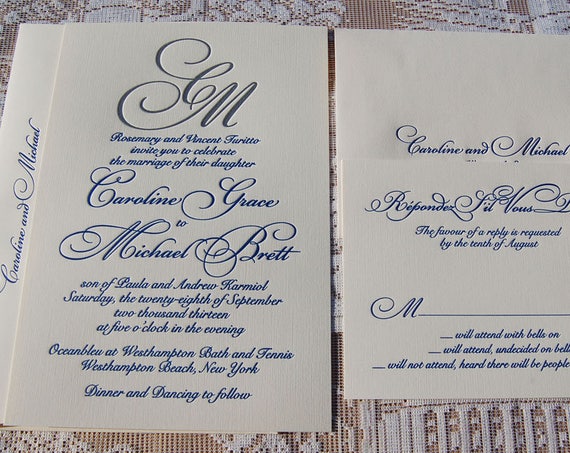 Caroline and Michael
CM
Rosemary and Vincent Turitto
invite you to celebrate
the marriage of their daughter
Caroline Grace
to
Michael Brett
son of Paula and Andrew Karmiol
Saturday, the twenty-eighth of September
two thousand thirteen
at five o'clock in the evening
Oceanbleu at Westhampton Bath and Tennis
Westhampton Beach, New York
Dinner and Dancing to follow
Caroline and Michael
Répondez S'il Vous
The favour of a reply is requested
by the tenth of August
M
will attend with bells on
will attend, undecided on bells
will not attend, heard there will be people